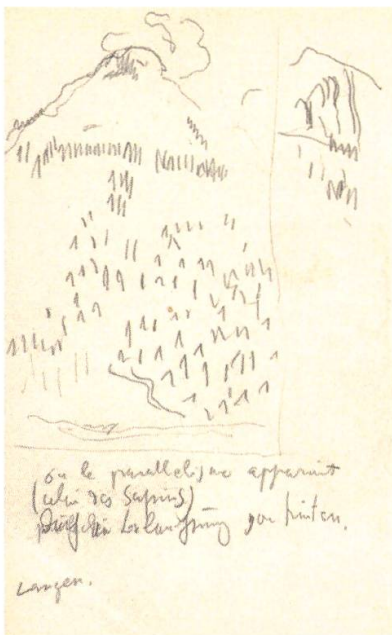 où le parallelisme apparait
(celui des Sapins)
von hinten.
Langen.